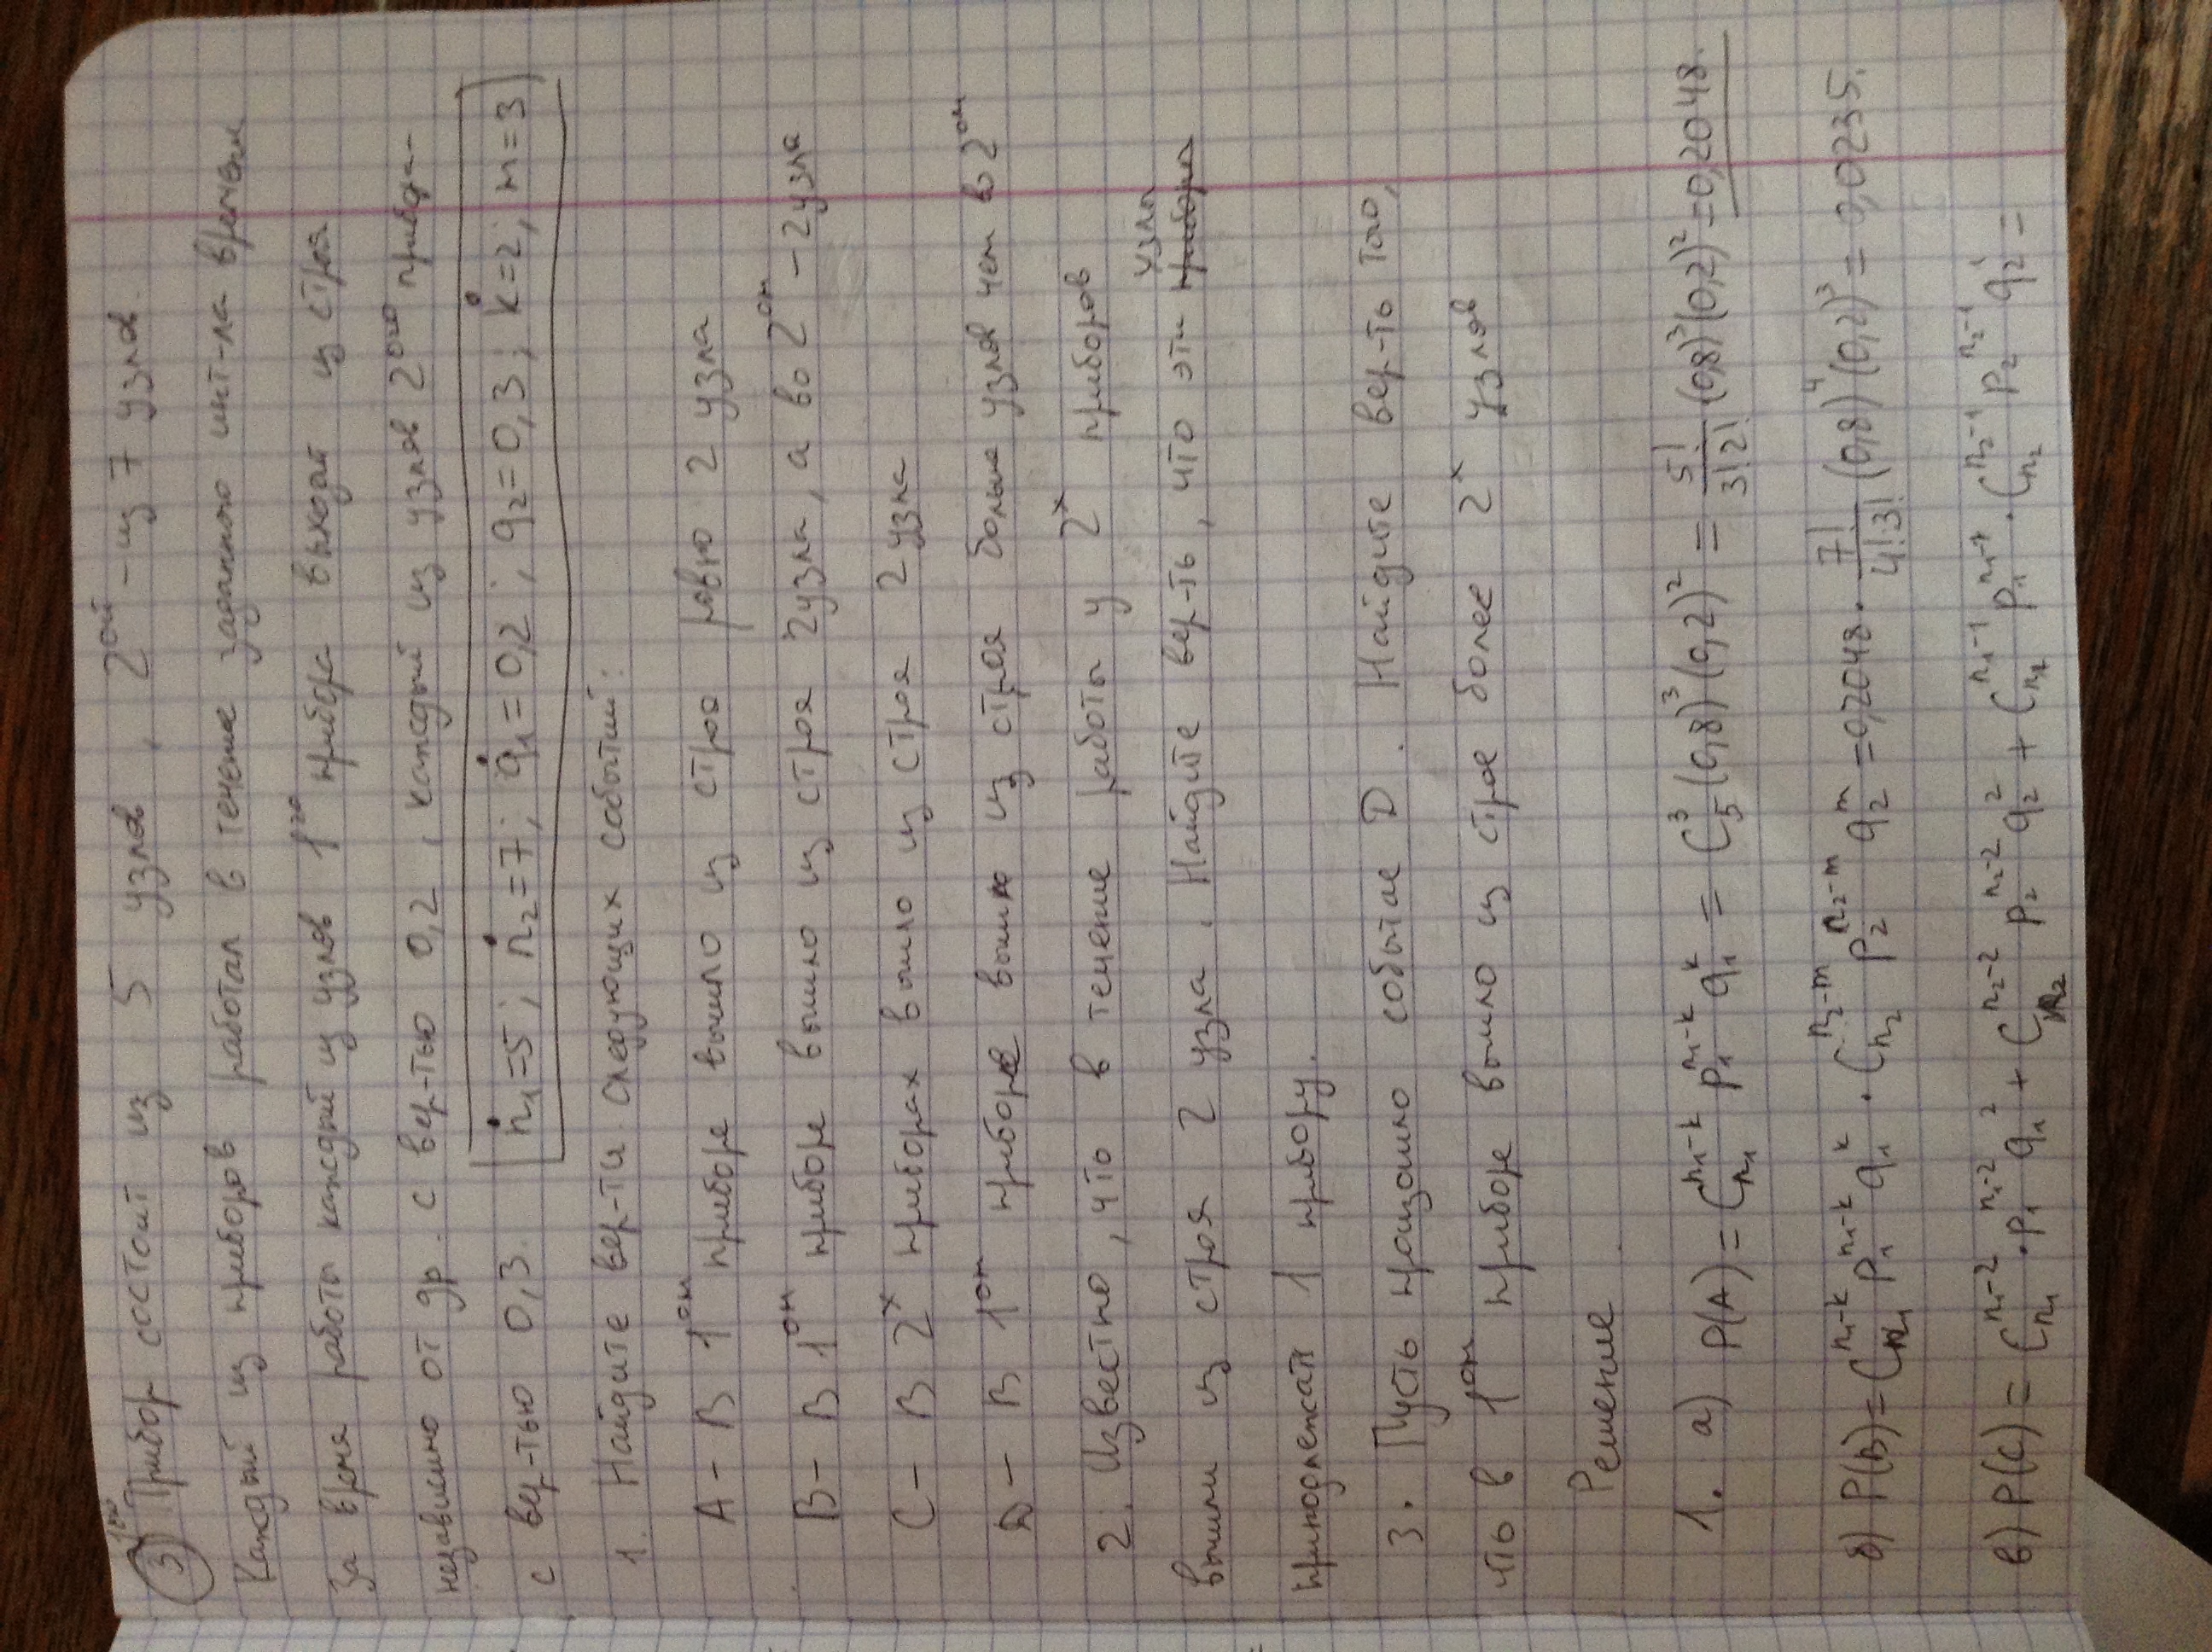 ③ 1ый Прибор состоит из 5 узлов, 2ой - из 7 узлов.
Каждый из приборов работал в течение заданного инт-ла времени
За время работы каждый из узлов 1го прибора выходит из строя
независимо от др. с вер-тью 0,2, каждый из узлов 2ого прибора-
с вер-тью 0,3. n₁=5; n₂=7; q₁=0,2; q₂=0,3; k=2; m=3
1. Найдите вер-ти следующих событий:
A - В 1ом приборе вышло из строя ровно 2 узла
B - В 1ом приборе вышло из строя 2 узла, а во 2ом - 2 узла
C - В 2х приборах вышло из строя 2 узла
D - В 1ом приборе вышло из строя больше узлов чем во 2ом
2. Известно, что в течение работы у 2х приборов
вышли из строя 2 узла. Найдите вер-ть, что эти приборы узлы
принадлежат 1 прибору.
3. Пусть произошло событие D. Найдите вер-ть того,
что в 1ом приборе вышло из строе более 2х узлов
Решение
1. а) P(A) = C_{n₁}^{n₁-k} p₁^{n₁-k} q₁^k = C_5^3 (0,8)^3 (0,2)^2 = 5!/(3!2!) (0,8)^3 (0,2)^2 = 0,2048.
б) P(B) = C_{n₁}^{n₁-k} p₁^{n₁-k} q₁^k · C_{n₂}^{n₂-m} p₂^{n₂-m} q₂^m = 0,2048 · 7!/(4!3!) (0,8)^4 (0,2)^3 = 0,0235.
в) P(C) = C_{n₁}^{n₁-2} · p₁^{n₁-2} q₁^2 + C_{n₂}^{n₂-2} p₂^{n₂-2} q₂^2 + C_{n₁}^{n₁-1} p₁^{n₁-1} · C_{n₂}^{n₂-1} p₂^{n₂-1} q₂^1 =